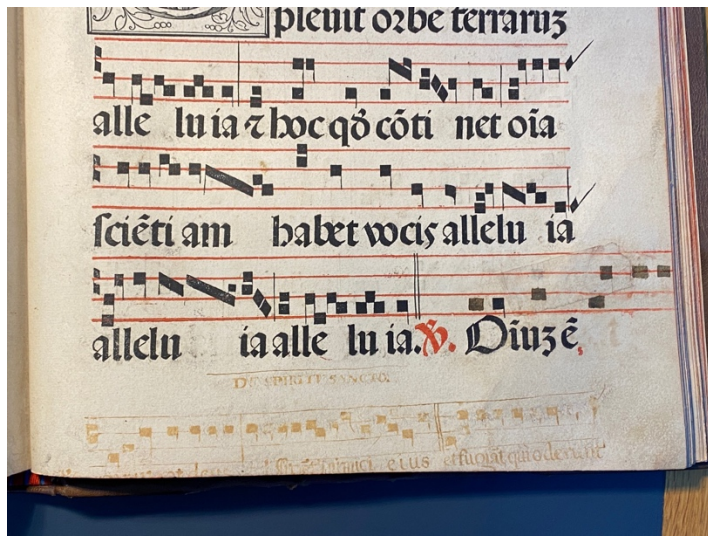 pleuit orbe terraruꝫ
alle lu ia ⁊ hoc qđ cōti net oīa
sciēti am habet vocis allelu ia
allelu ia alle lu ia. ℣. Diuꝫ ē,
DE SPIRITU SANCTO.
eius et fugiat qui oderunt